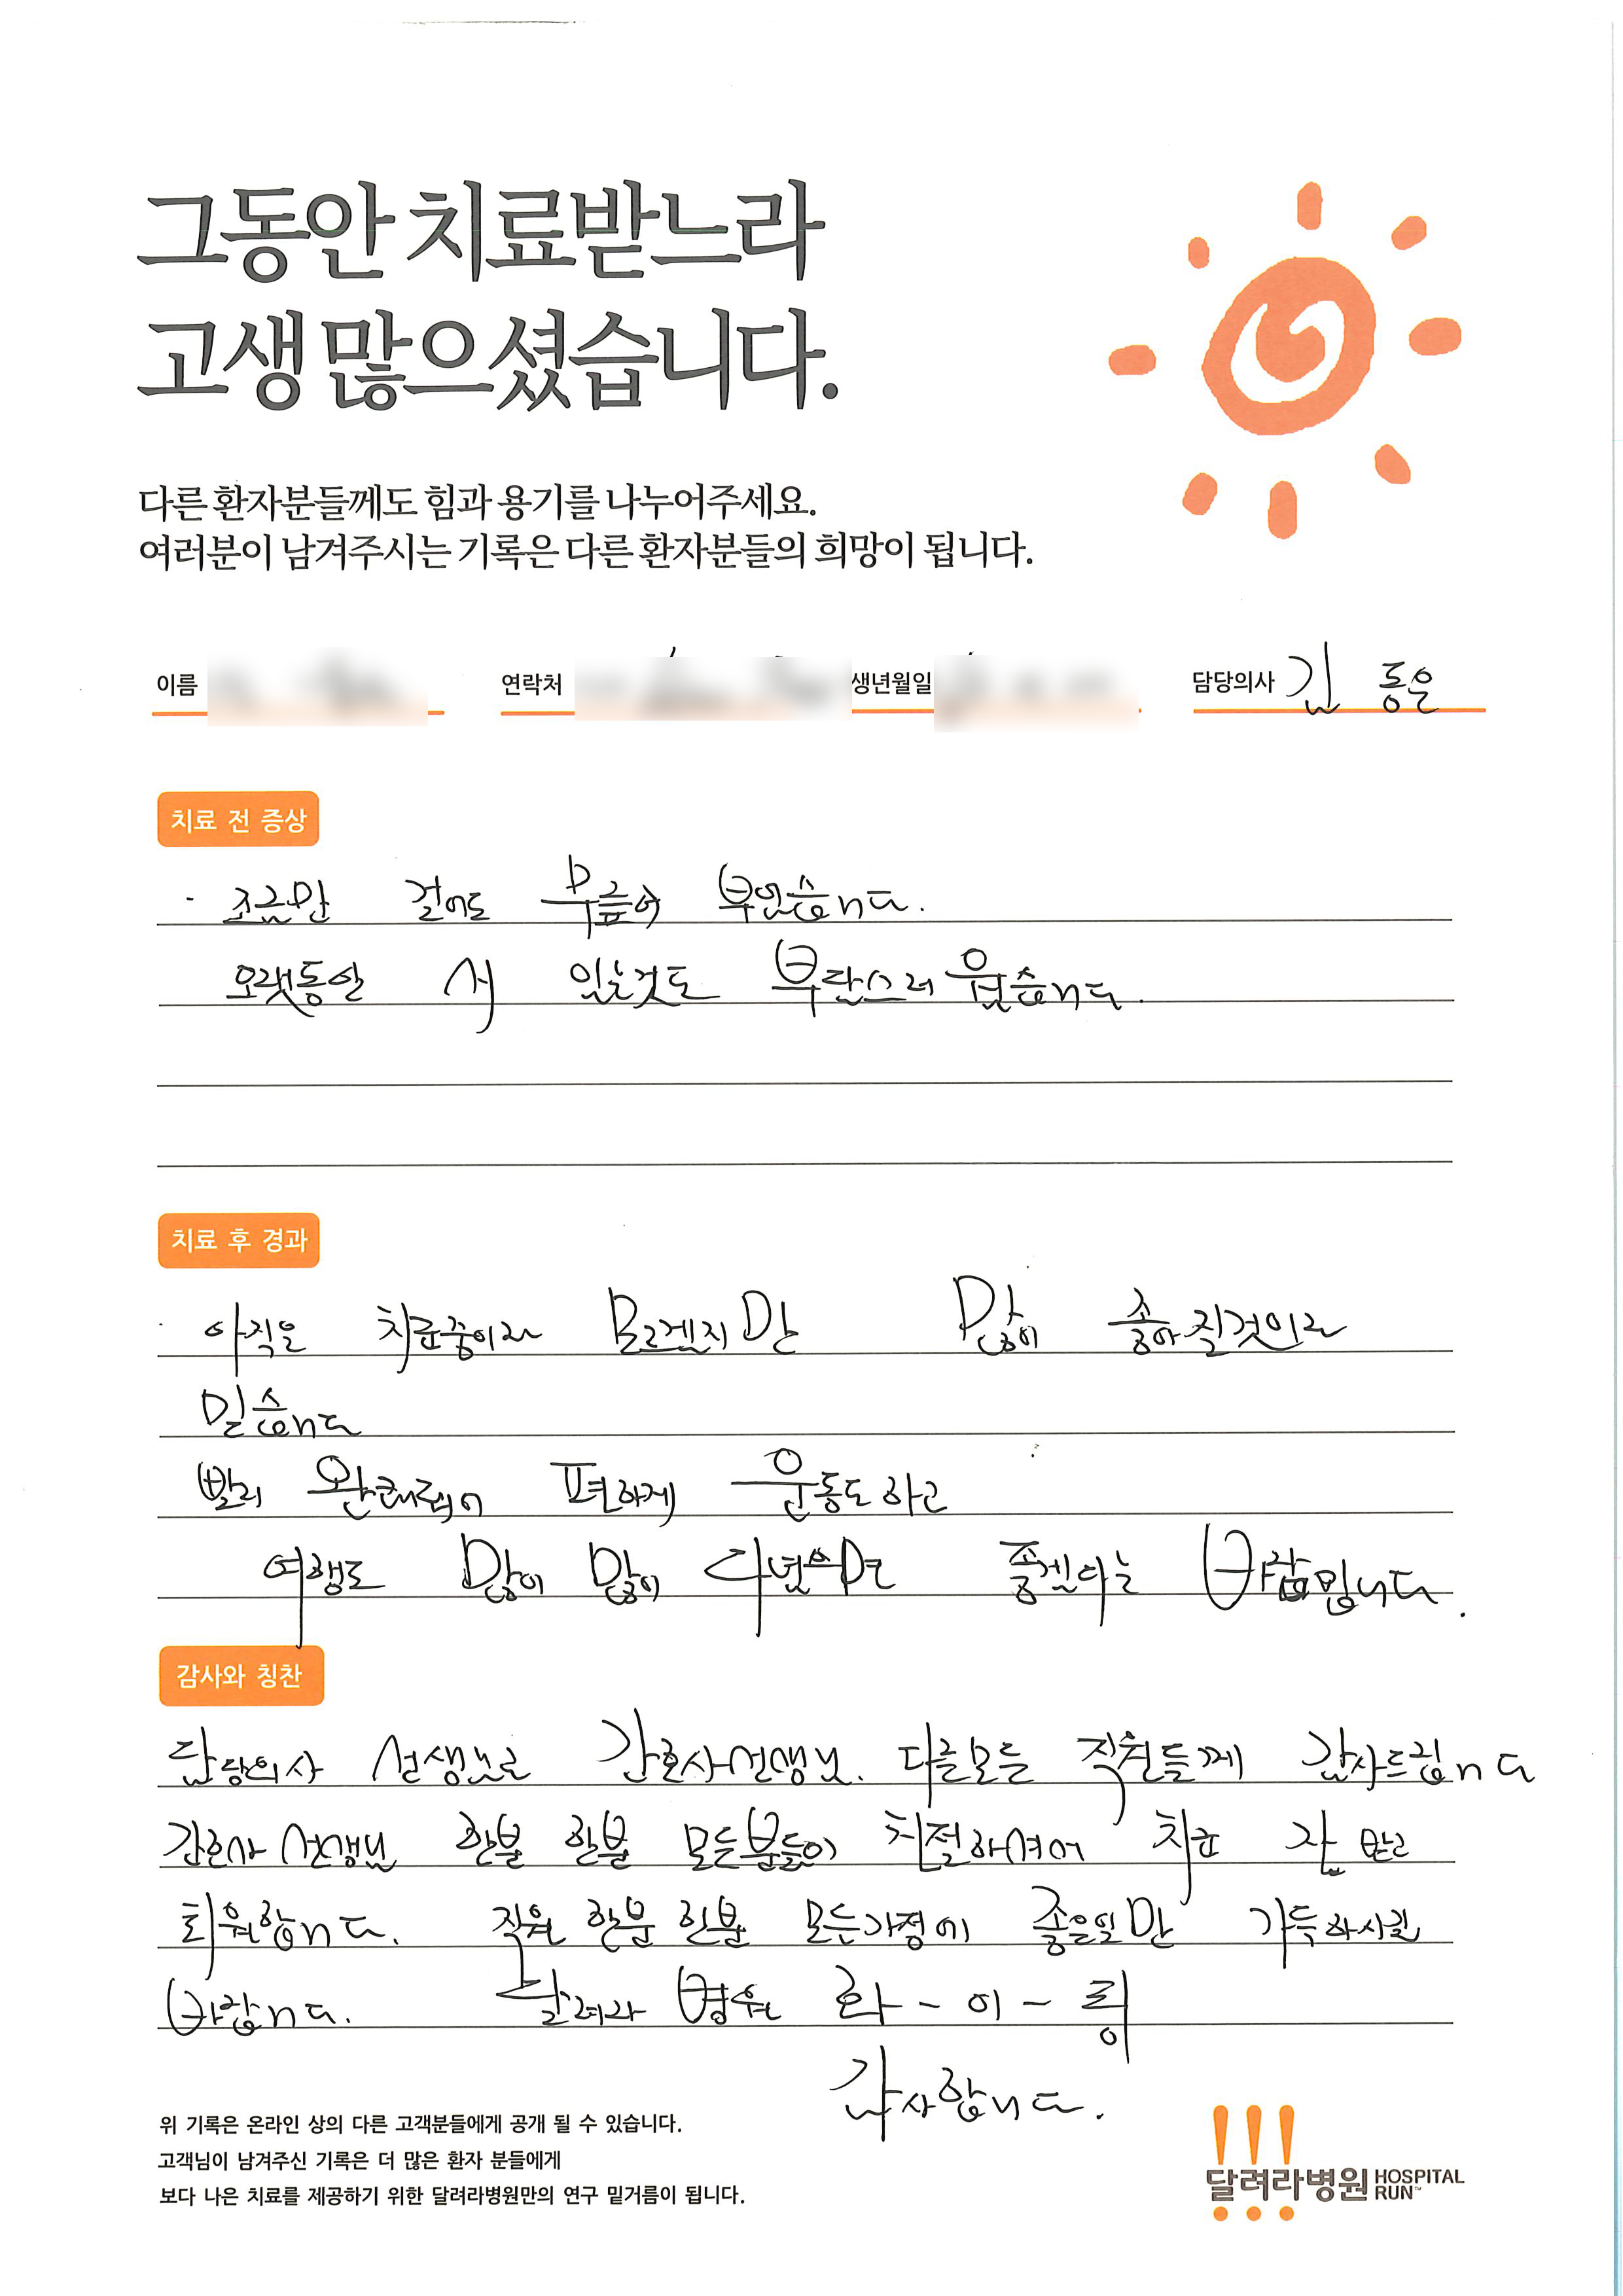 그동안 치료받느라
고생 많으셨습니다.
다른 환자분들께도 힘과 용기를 나누어주세요.
여러분이 남겨주시는 기록은 다른 환자분들의 희망이 됩니다.
이름 연락처 생년월일 담당의사 김 동은
치료 전 증상
· 조금만 걸어도 무릎이 부었습니다.
오랫동안 서 있는것도 부담스러웠습니다.
치료 후 경과
· 아직은 치료중이라 모르겠지만 많이 좋아질것이라
믿습니다
빨리 완쾌되어 편하게 운동도 하고
여행도 많이 많이 다녔으면 좋겠다는 바람입니다.
감사와 칭찬
담당의사 선생님 간호사선생님. 다른모든 직원들께 감사드립니다
간호사 선생님 한분 한분 모든분들이 친절하셔서 치료 잘 받고
퇴원합니다. 직원 한분 한분 모든가정에 좋은일만 가득하시길
바랍니다. 달려라 병원 화-이-링
감사합니다.
위 기록은 온라인 상의 다른 고객분들에게 공개 될 수 있습니다.
고객님이 남겨주신 기록은 더 많은 환자 분들에게
보다 나은 치료를 제공하기 위한 달려라병원만의 연구 밑거름이 됩니다.
달려라병원 HOSPITAL RUN™